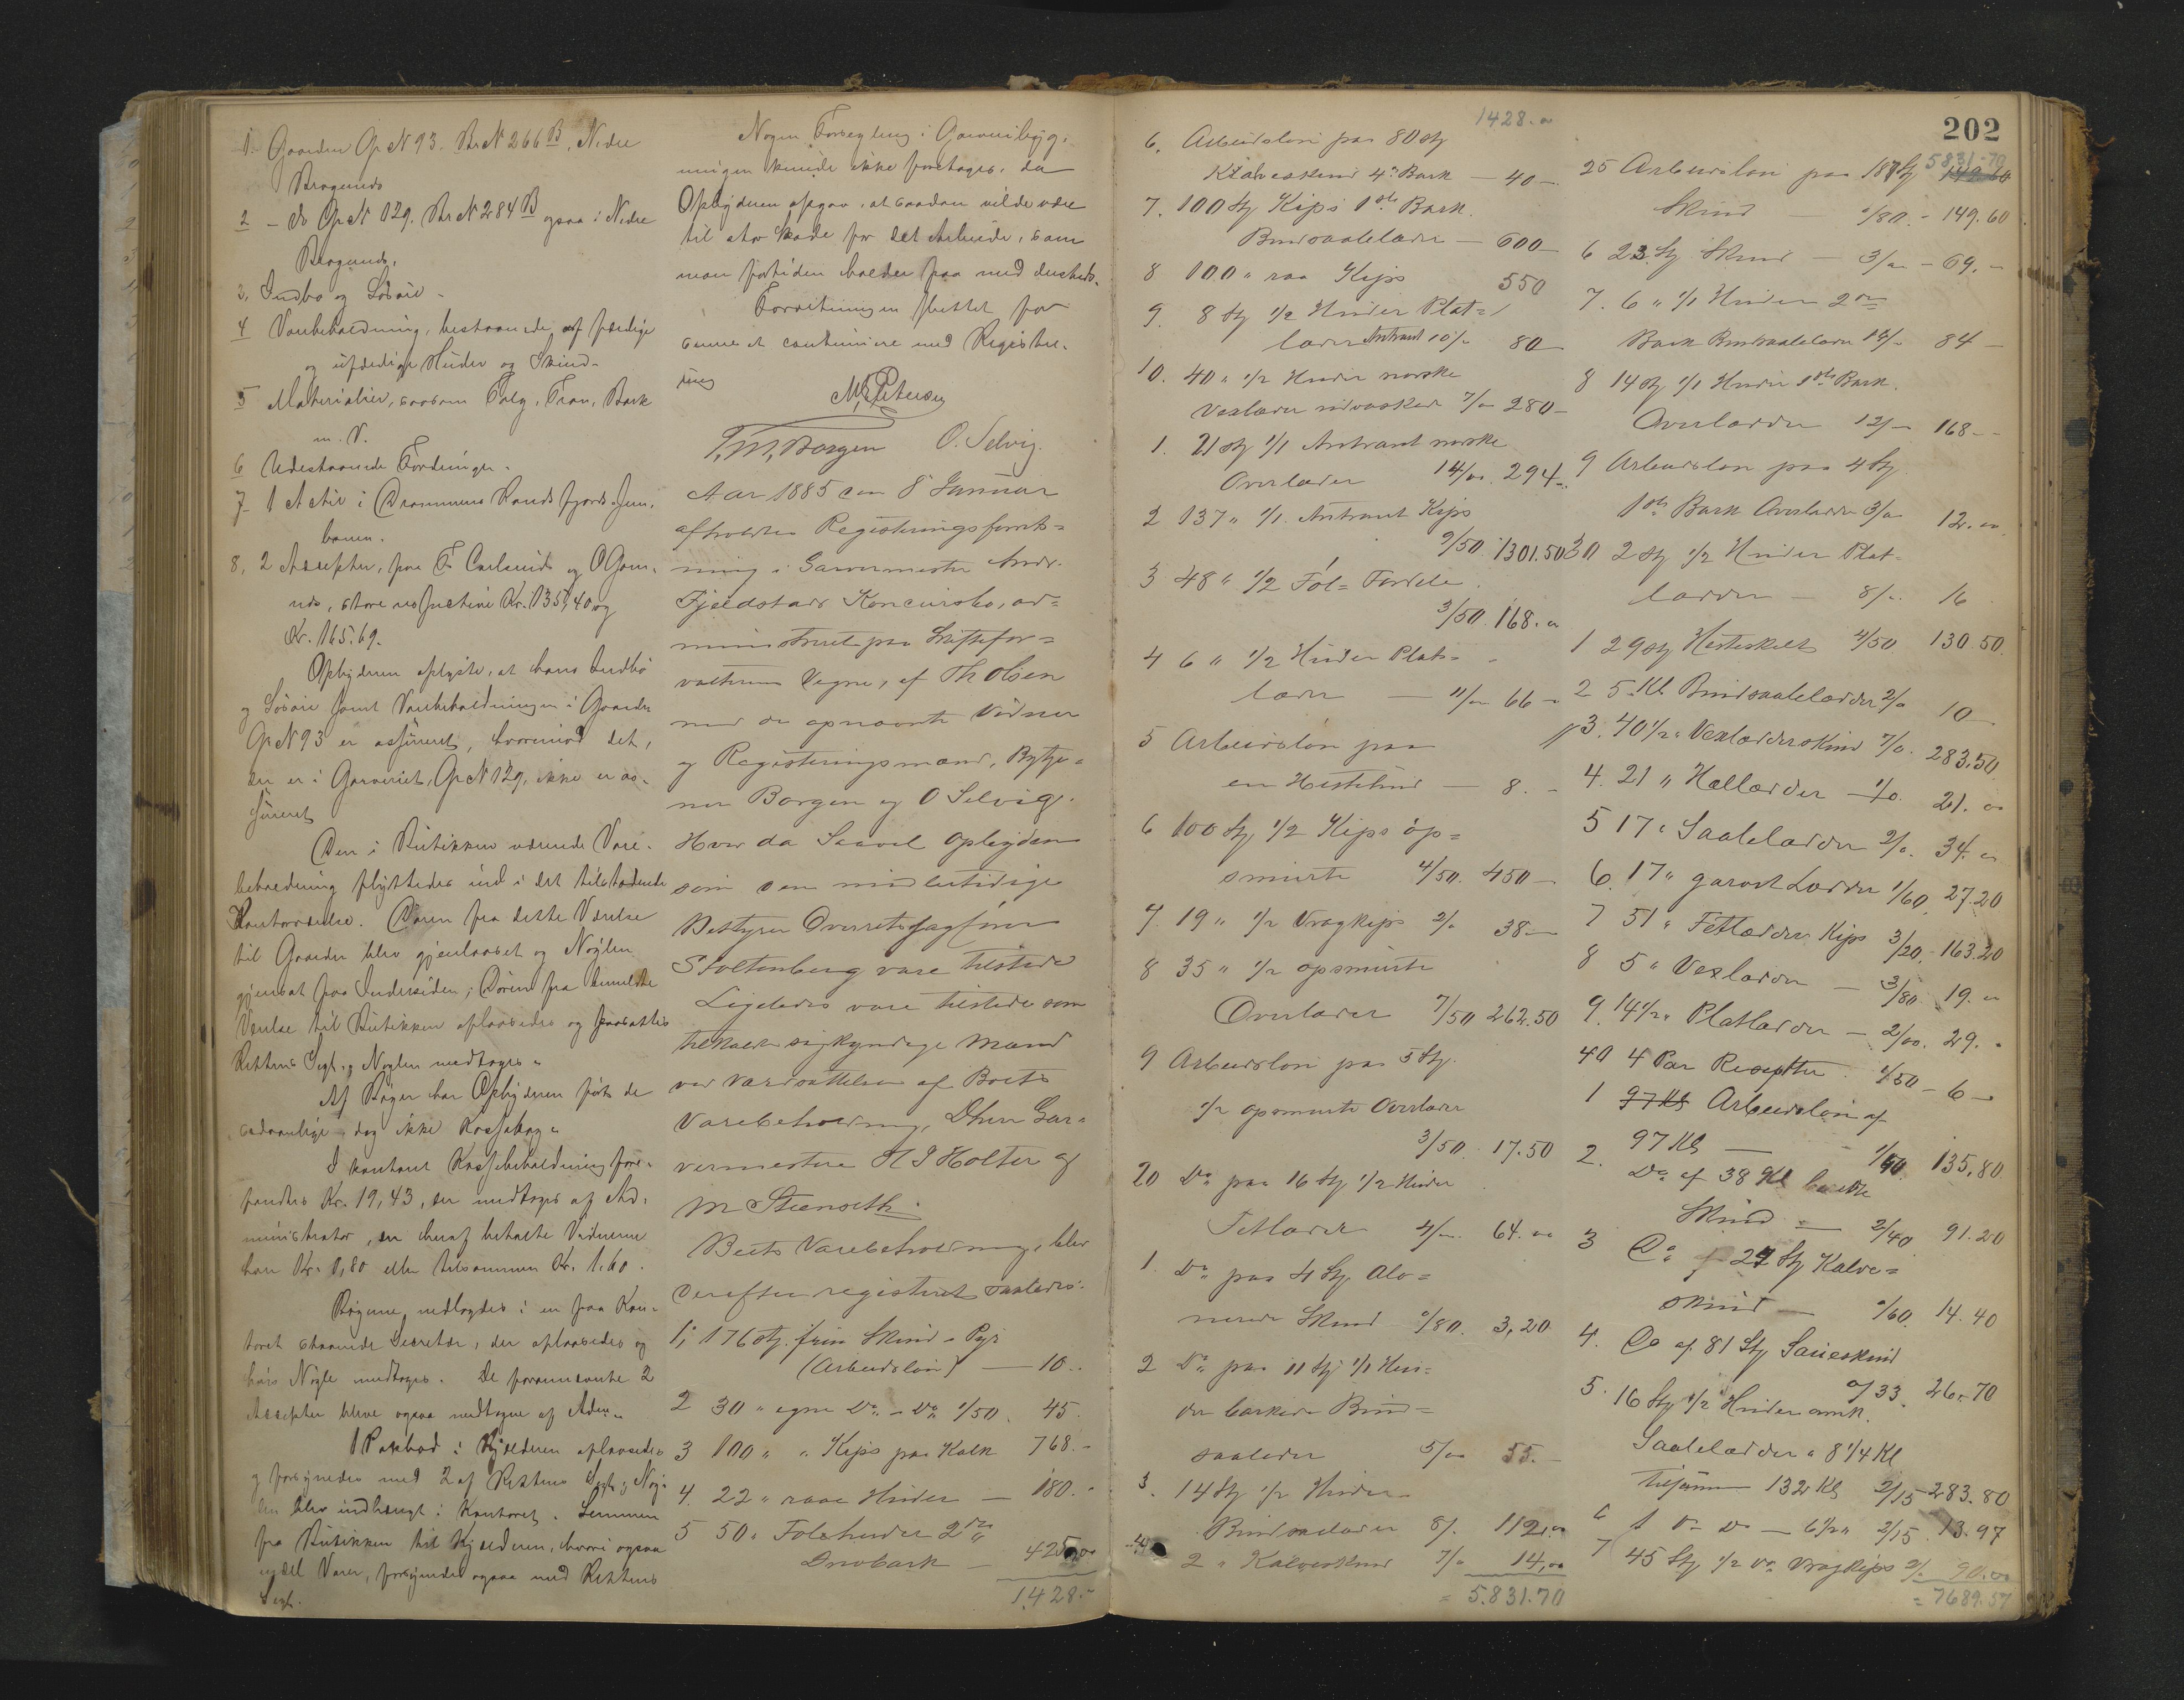 1. Gaarden Gp N 93. Br N 266 B, Nedre
Bragernes
2 - do Gp N 129. Br N 284 B ogsaa i Nedre
Bragernes.
3. Indbo og Løsøre -
4 Varebeholdning, bestaaende af færdige
og ufærdige Huder og Skind -
5 Materialier, saasom Talg, Tran, Bark
m. V.
6 Udestaaende Fordringer.
7. 1 Actie i Drammens Randsfjords Jern-
banen.
8, 2 Accepter, paa
Kr. 135,40 og
Kr. 165.69.
Opbyderen oplyste, at hans Indbo
og Løsøre samt Varebeholdningen i Gaarden
Gp N 93 er assureret, hvorimod det,
der er i Garveriet, Gp N 129, ikke er as-
sureret
Den i Butikken værende Vare-
beholdning flyttedes ind i det tilstødende
Kontorværelse. Døren fra dette Værelse
til Gaarden blev gjenlaaset og Nøglen
gjensat paa Indersiden; Døren fra bemeldte
Værelse til Butikken aflaasedes og paasattes
Rettens Segl, og Nøglen medtoges.
Af Bøger har Opbyderen ført de
sædvanlige, dog ikke Kassabog.
I kontant Kassebeholdning fore-
fandtes Kr. 19,43, der medtoges af Ad-
ministrator, der heraf betalte Vidnerne
hver Kr. 0,80 eller tilsammen Kr. 1.60.
Bøgerne nedlagdes i en paa Kon-
toret staaende Secretær, der aflaasedes og
hvis Nøgle medtoges. De forannævnte 2
Accepter bleve ogsaa medtagne af Adm.
1 Pakbod i Kjælderen aflaasedes
og forsynedes med 2 af Rettens Segl, og Nøg-
len blev indhængt i Kontoret. Lemmen
fra Butikken til Kjælderen, hvori ogsaa
endel Varer, forsynedes ogsaa med Rettens
Segl.
Nogen Forsegling i Garveribyg-
ningen kunde ikke foretages, da
Opbyderen opgav, at saadan vilde være
til stor Skade for det Arbeide, som
man fortiden holder paa med dersteds.
Forretningen sluttet for
senere at continuere med Registre-
ring
M Petersen
T. M. Borgen O. Selvig.
Aar 1885 den 8 Januar
afholdtes Registreringsforret-
ning i Garvermester Andr.
Fjeldstads Konkursbo, ad-
ministreret paa Skiftefor-
valterens Vegne, af Th Olsen
med de opnævnte Vidner
og Registreringsmænd, Bytje-
ner Borgen og O Selvig.
Hvor da Saavel Opbyderen
som den midlertidige
Bestyrer Overretssagfører
Stoltenberg vare tilstede
Ligeledes vare tilstede som
tilkaldte sagkyndige Mænd
ved Værdsættelsen af Boets
Varebeholdning, Dhrr Gar-
vermestere H J Holter og
M Steenseth.
Boets Varebeholdning, blev
derefter registreret saaledes:
1, 176 stj. Skind
(Arbeidsløn) — 10.
2 30 " egne Do - Do 1/50. 45
3 100 " " Kips paa Kalk 768.-
4. 22 " raae Huder — 180.-
5 50 " Folehuder 2den
Drivbark — 425,00
1,428.-
1428.00
6. Arbeidsløn paa 80 stj
Kalveskind 4de Bark — 40 -
7. 100 stj Kips 1ste Bark.
Bindsaalelæder — 600 -
8 100 " raa Kips 550
9. 8 stj 1/2 Huder Plat-
læder Antrant 10/- 80 -
10. 40 " 1/2 Huder norske
Vaxlæder udvasket 7/- 280 -
1. 21 stj 1/1 Antrant norske
Overlæder 14/00. 294 -
2 137 " 1/1. Antrant Kips
9/50. 1301.50
3 48 " 1/2 Føl-Fordele
3/50. 168.00
4 6 " 1/2 Huder Plat-
læder — 11/- 66 -
5 Arbeidsløn paa
en Hestehud — 8. -
6 100 Stj 1/2 Kips op-
smurte 4/50. 450 -
7 19 " 1/2 Vragkips 2/- 38 -
8 35 " 1/2 opsmurte
Overlæder 7/50 262.50
9 Arbeidsløn paa 5 Stj.
1/2 opsmurte Overlæder
3/50. 17.50
20 Do paa 16 Stj 1/2 Huder
Fetlæder 4/-. 64.00
1. Do paa 4 Stj Alu-
nerede Skind 0/80. 3,20
2 Do paa 11 Stj 1/1 Hu-
der barkede Bind-
saalæder 5/00 55. -
3. 14 Stj 1/2 Huder
Bindsaalæder 8/. 112,00
4 2 " Kalveskind 7/0 14,00
= 5.831.70
202
5831-70
25 Arbeidsløn paa 187 Stj
Skind — 0/80. - 149.60
6 23. Stj Skind — 3/00 - 69. -
7. 6 " 1/1 Huder 2den
Bark Bindsaalelæder 14/- 84 -
8 14 stj 1/1 Huder 1ste Bark.
Overlæder 12/- 168 -
9 Arbeidsløn paa 4 Stj
1ste Bark Overlæder 3/00 12.00
30 2 Stj 1/2 Huder Plat-
læder — 8/-. 16
1 29 stj Hesteskelt 4/50 130.50.
2 5. Kl. Bindsaalelæder 2/0 10 -
3. 40 1/2 " Vaxlæderskind 7/0. 283.50
4. 21 " Hællæder 1/0. 21.00
5 17 " Saalelæder 2/0. 34.00
6. 17 " garvet Læder 1/60. 27.20
7 51 " Fetlæder Kips 3/20. 163.20
8 5 " Vaxlæder — 3/80. 19.00
9. 14 1/2 " Platlæder — 2/00. 29.
40 4 Par 1/50 - 6 -
1 97 Kl Arbeidsløn af
97 Kl — 1/40. 135,80
2. Do af 38 Kl
Skind — 2/40 91.20
3 Do af 24 Stj Kalve-
skind — 0/60. 14.40
4. Do af 81 Stj Saueskind
0/33. 26.70
5. 16 Stj 1/2 Huder
Saalelæder " 8 1/4 Kl
tilsammen 132 Kl 2/15 283.80
6 1 Do Do — 6 1/2 " 2/15. 13.97
7 45 Stj 1/2 Do Vragkips 2/. 90.00
= 7689.57